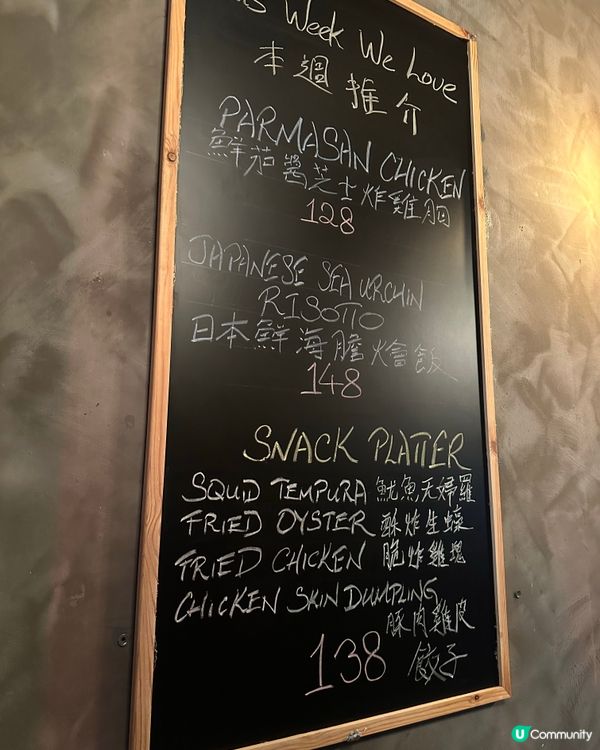 Week We Love
本週推介
PARMASAN CHICKEN
鮮茄醬芝士炸雞胸
128
JAPANESE SEA URCHIN
RISOTTO
日本鮮海膽燴飯
148
SNACK PLATTER
SQUID TEMPURA 魷魚天婦羅
FRIED OYSTER 酥炸生蠔
FRIED CHICKEN 脆炸雞塊
CHICKEN SKIN DUMPLING
豚肉雞皮
138 餃子
U Community